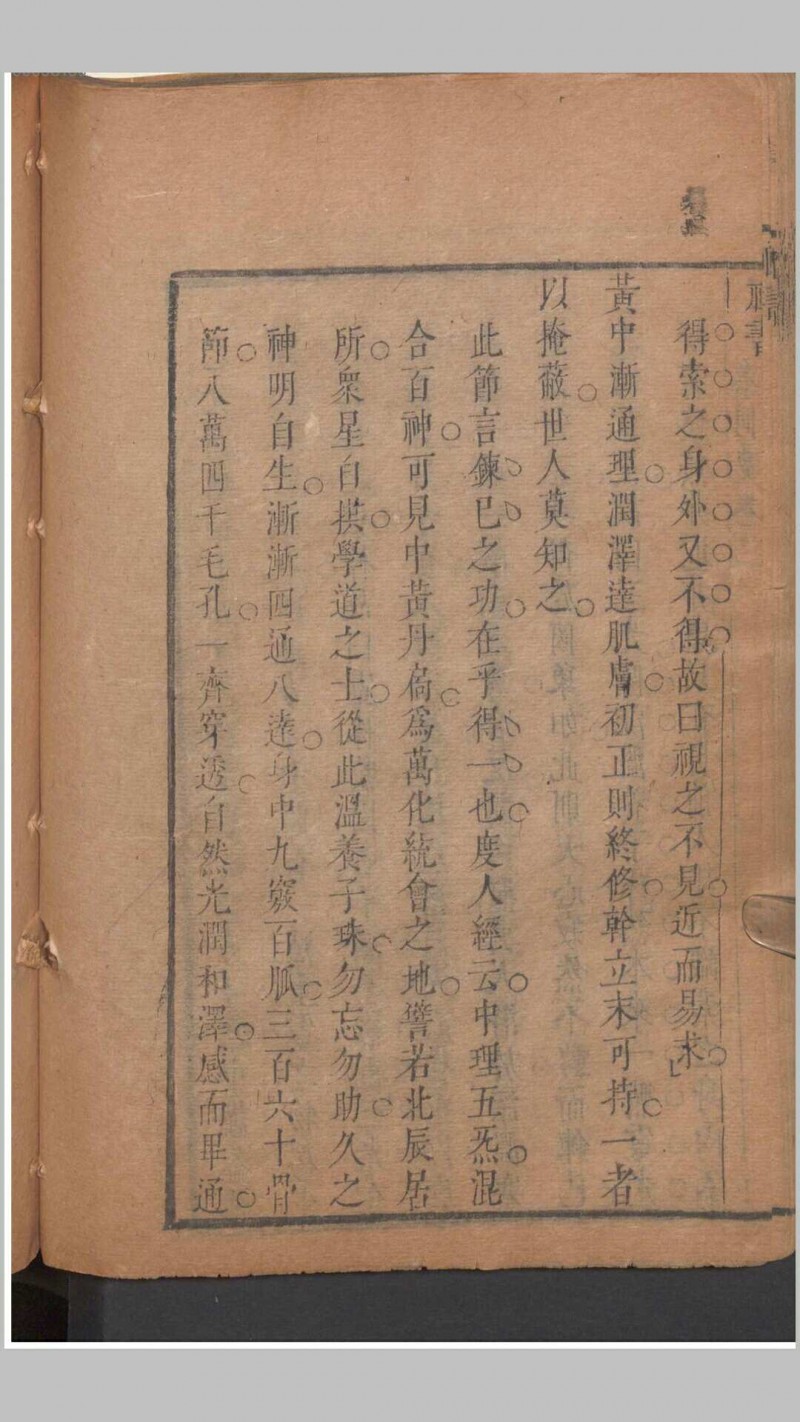 得索之身外又不得故曰視之不見近而易求
黃中漸通理潤澤達肌膚初正則終修幹立末可持一者
以掩蔽世人莫知之
此節言鍊已之功在乎得一也度人經云中理五炁混
合百神可見中黃丹扃爲萬化統會之地譬若北辰居
所衆星自拱學道之士從此溫養子珠勿忘勿助久之
神明自生漸漸四通八達身中九竅百脈三百六十骨
節八萬四千毛孔一齊穿透自然光潤和澤感而畢通